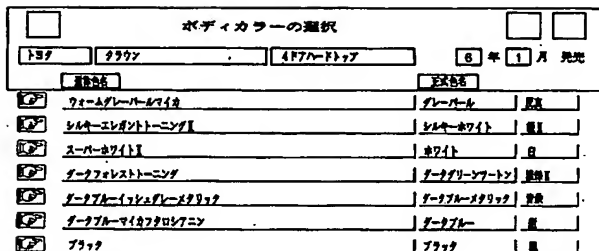 ボディカラーの選択
トヨタ クラウン 4ドアハードトップ 6 年 1 月 発売
正式色名
ウォームグレーパールマイカ グレーパール
シルキーエレガントトーニングⅡ シルキーホワイト 銀Ⅱ
スーパーホワイトⅡ ホワイト 白
ダークフォレストトーニング ダークグリーンツートン
ダークブルーイッシュグレーメタリック ダークブルーメタリック
ダークブルーマイカフタロシアニン ダークブルー
ブラック ブラック 黒